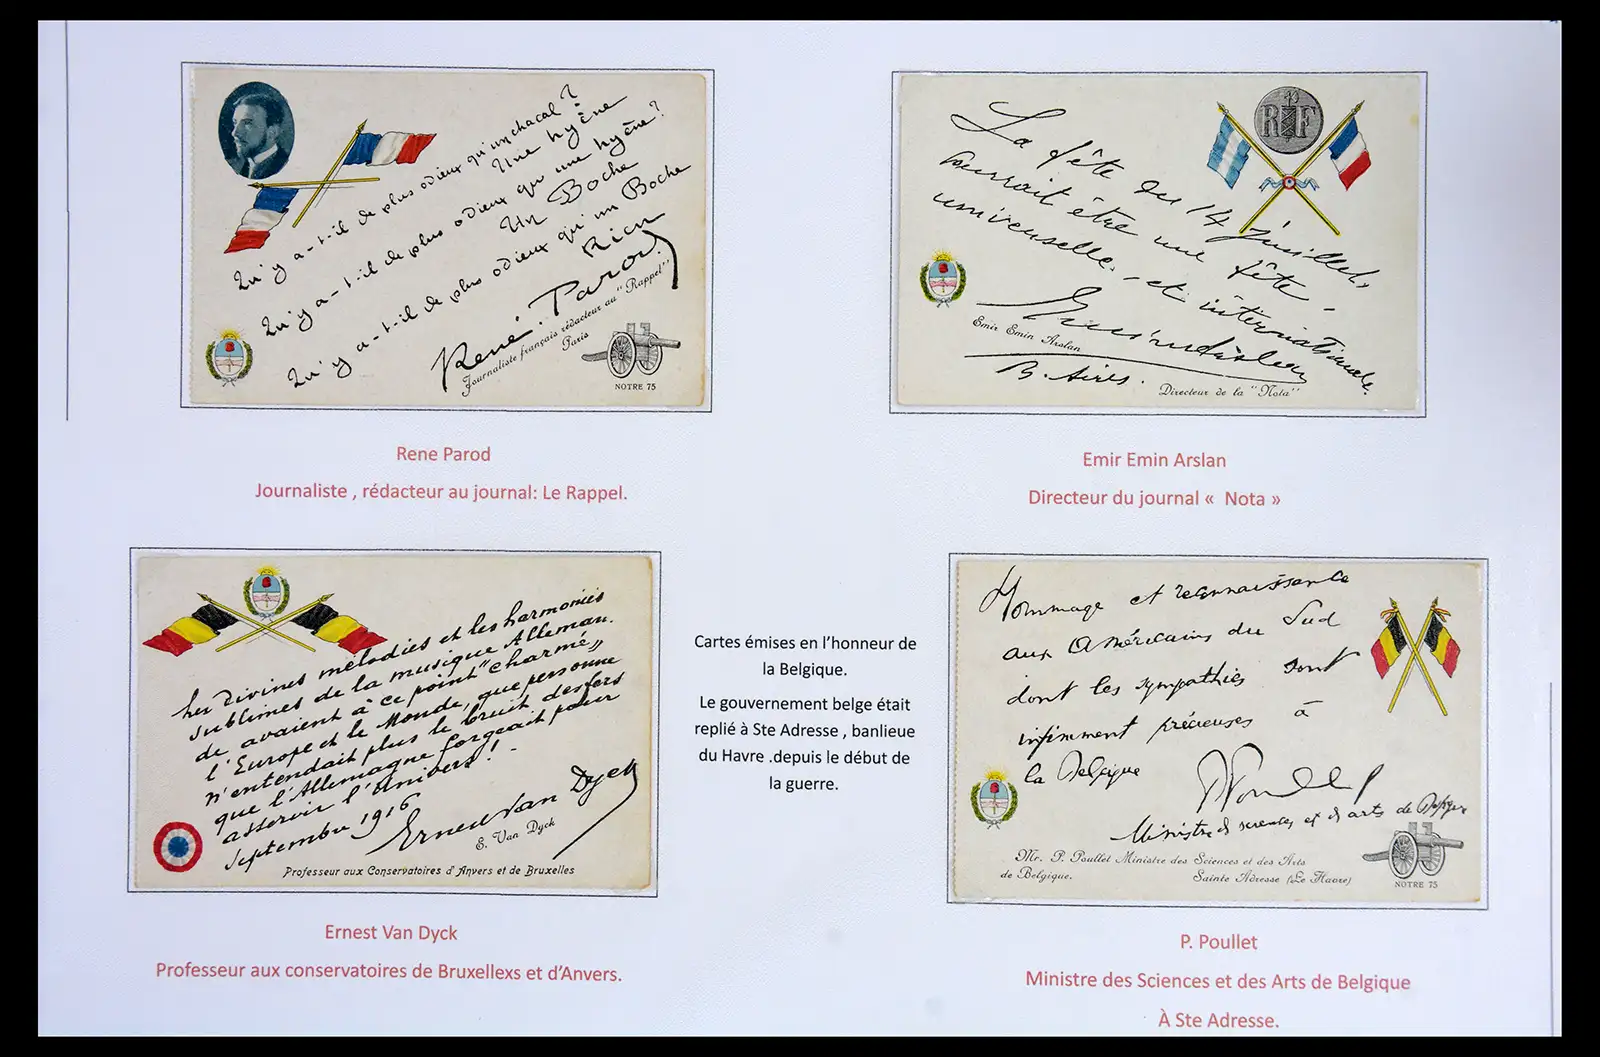 Qu'y a-t-il de plus odieux qu'un chacal ?
Une hyène
Qu'y a-t-il de plus odieux qu'une hyène ?
Un Boche
Qu'y a-t-il de plus odieux qu'un Boche
Rien
René. Parod
Journaliste français rédacteur au "Rappel"
Paris
NOTRE 75
Rene Parod
Journaliste , rédacteur au journal: Le Rappel.
RF
La fête du 14 Juillet,
pourrait être une fête
universelle. - et internationale.
Emir Emin Arslan
B. Aires.
Directeur de la "Nota"
Emir Emin Arslan
Directeur du journal « Nota »
Les divines mélodies et les harmonies
sublimes de la musique Alleman.
de avaient à ce point "charmé"
l'Europe et le Monde, que personne
n'entendait plus le bruit des fers
que l'Allemagne forgeait pour
asservir l'Univers ! -
Septembre 1916
Ernest Van Dyck
E. Van Dyck
Professeur aux Conservatoires d'Anvers et de Bruxelles
Ernest Van Dyck
Professeur aux conservatoires de Bruxellexs et d'Anvers.
Cartes émises en l'honneur de
la Belgique.
Le gouvernement belge était
replié à Ste Adresse , banlieue
du Havre .depuis le début de
la guerre.
Hommage et reconnaissance
aux Américains du Sud
dont les sympathies sont
infiniment précieuses à
la Belgique
P Poullet
Ministre des sciences et des arts de Belgique
Mr. P. Poullet Ministre des Sciences et des Arts
de Belgique.
Sainte Adresse (Le Havre)
NOTRE 75
P. Poullet
Ministre des Sciences et des Arts de Belgique
À Ste Adresse.